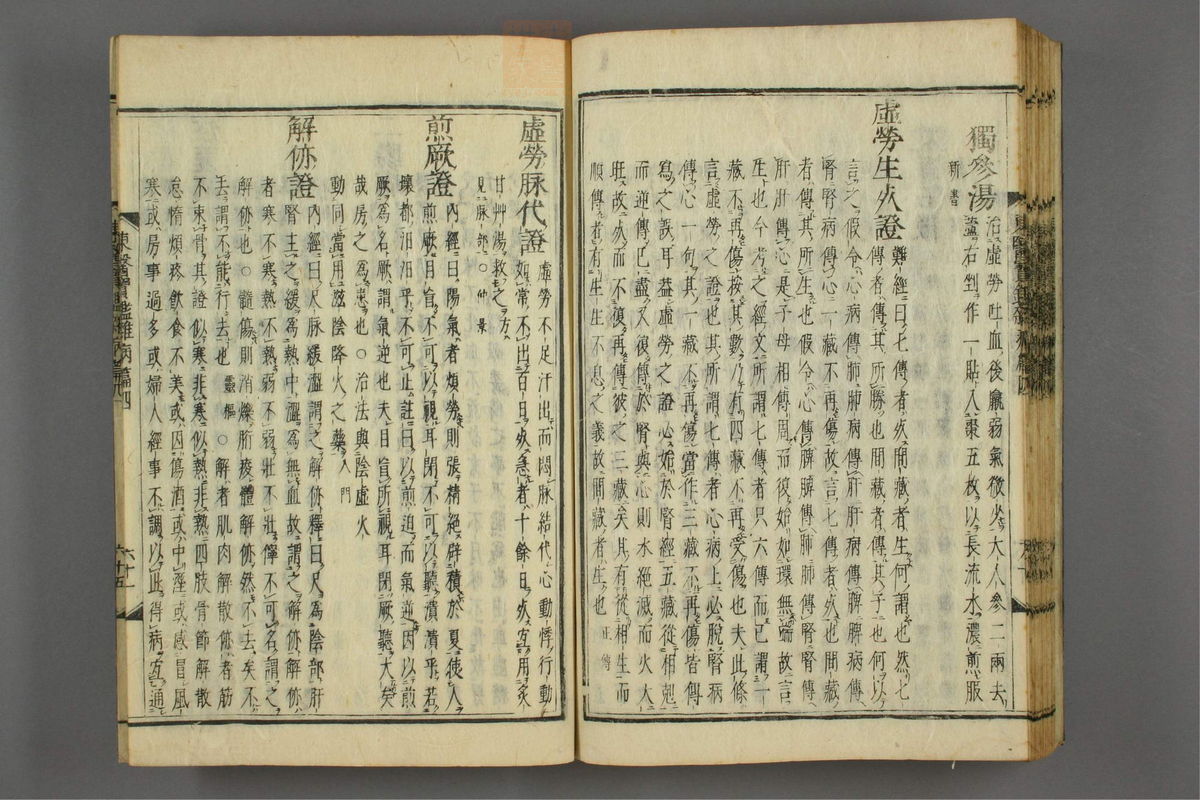 獨參湯治虛勞吐血後羸弱氣微少大人參二兩去
蘆右剉作一貼入棗五枚以長流水濃煎服
新書
虛勞生死證難經曰七傳者死間藏者生何謂也然七
傳者傳其所勝也間藏者傳其子也何以
言之假令心病傳肺肺病傳肝肝病傳脾脾病傳
腎腎病傳心一藏不再傷故言七傳者死也間藏
者傳其所生也假令心傳脾脾傳肺肺傳腎腎傳
肝肝傳心是子母相傳周而復始如環無端故言
生也今考之經文所謂七傳者只六傳而已謂一
藏不再傷按其數乃有四藏不再受傷也夫此條
言虛勞之證也其所謂七傳者心病上必脫腎病
傳心一句其一藏不再傷當作三藏不再傷皆傳
寫之誤耳盖虛勞之證必始於腎經五藏從相剋
而逆傳已盡又復傳於腎與心則水絕滅而火大
旺故死而不復再傳彼之三藏矣其有從相生而
順傳者有生生不息之義故間藏者生也正傳
虛勞脉代證虛勞不足汗出而悶脉結代心動悸行動
如常不出百日死急者十餘日死宜用炙
甘艸湯救之方見脉部○仲景
煎厥證內經曰陽氣者煩勞則張精絕辟積於夏使人
煎厥目盲不可以視耳閉不可以聽潰潰乎若
壞都汨汨乎不可止註曰以煎迫而氣逆因以煎
厥爲名厥謂氣逆也夫目盲所視耳閉厥聽大矣
哉房之爲患也○治法與陰虛火
動同當用滋陰降火之藥入門
解㑊證內經曰尺脉緩濇謂之解㑊釋曰尺爲陰部肝
腎主之緩爲熱中濇爲無血故謂之解㑊解㑊
者寒不寒熱不熱弱不弱壯不壯儜不可名謂之
解㑊也○髓傷則消爍胻痠體解㑊然不去矣不
去謂不能行去也靈樞○解者肌肉解散㑊者筋
不束骨其證似寒非寒似熱非熱四肢骨節解散
怠惰煩疼飮食不美或因傷酒或中濕或感冒風
寒或房事過多或婦人經事不調以此得病宜通
東醫寶鑑雜病篇四
六十五